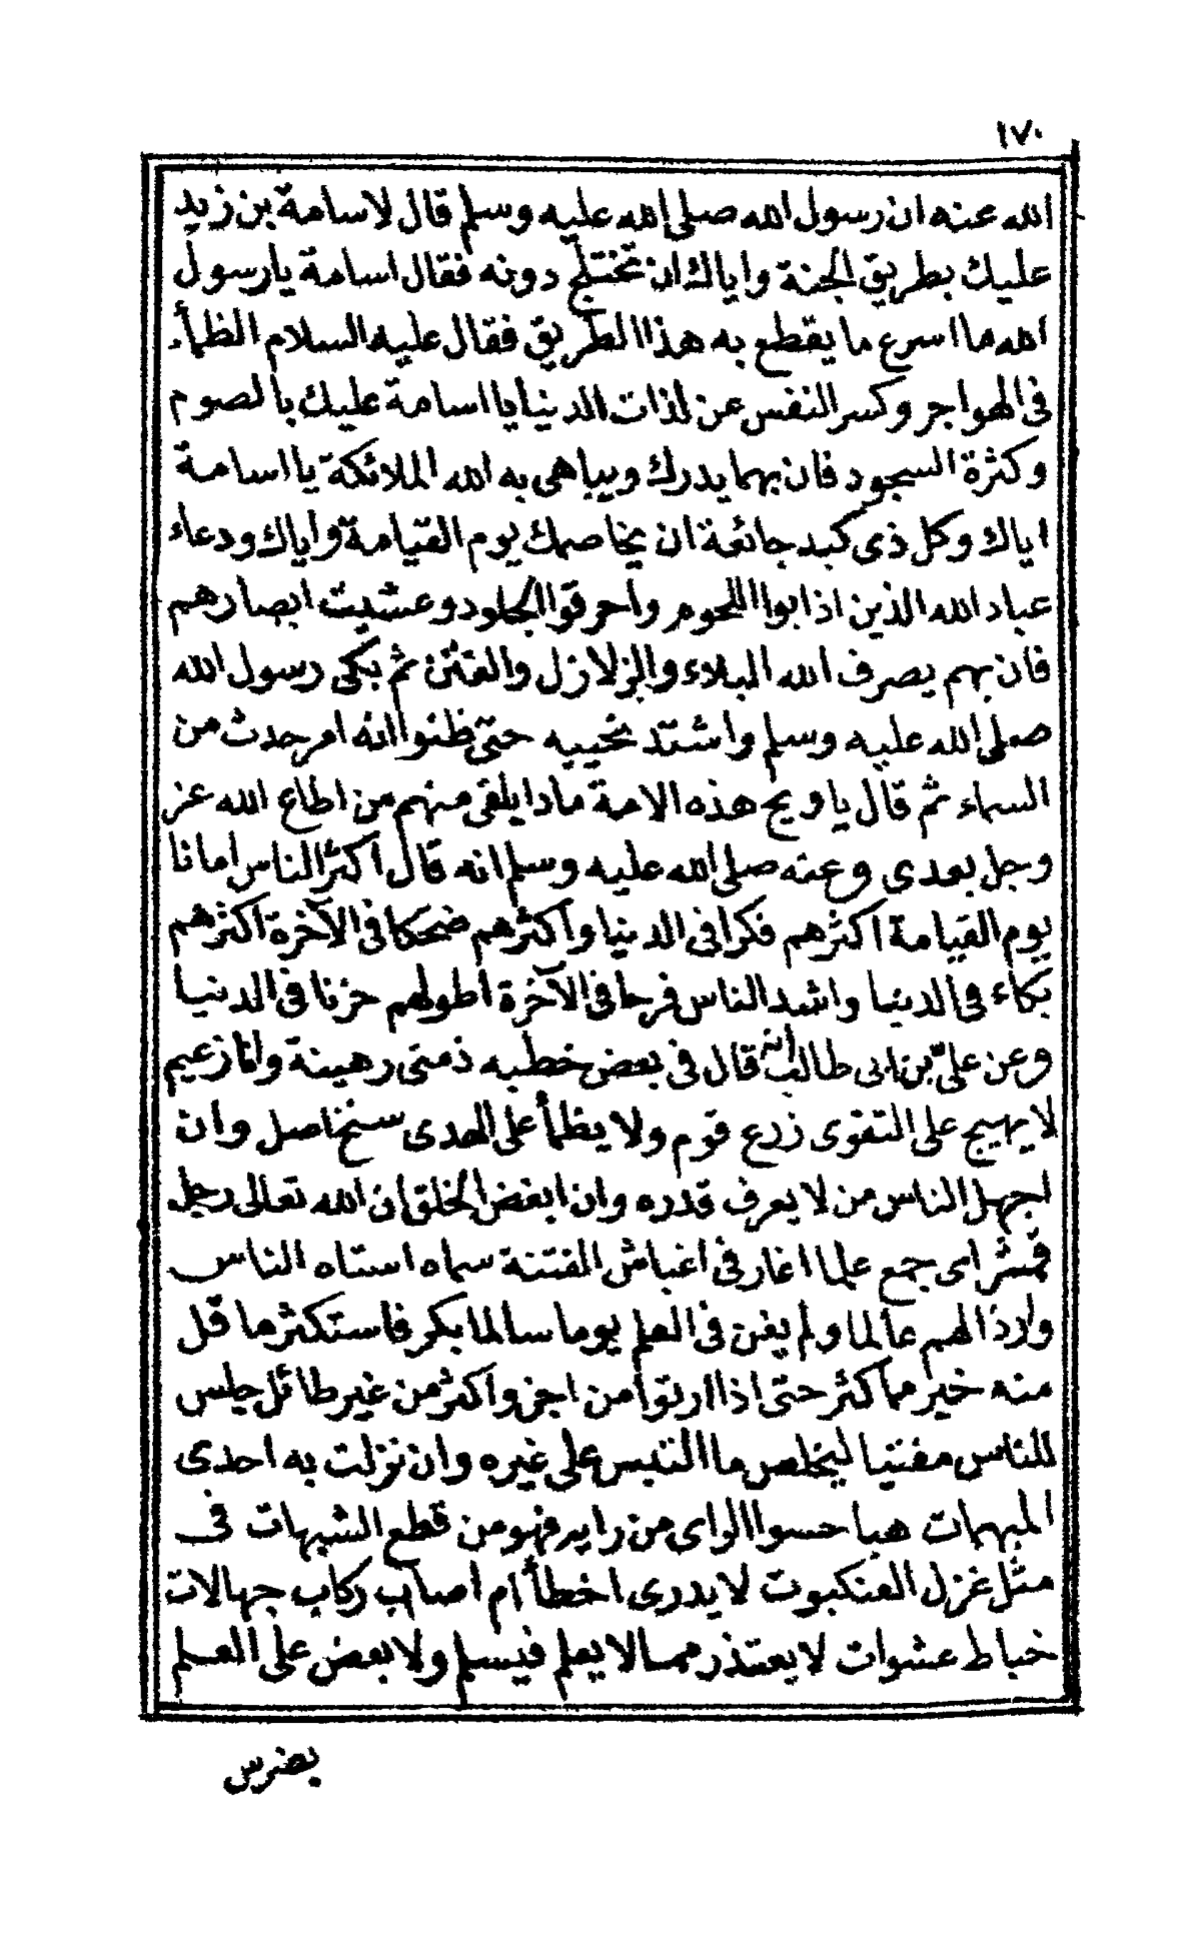 ١٧٠
الله عنه ان رسول الله صلى الله عليه وسلم قال لاسامة بن زيد
عليك بطريق الجنة واياك ان تختلج دونه فقال اسامة يا رسول
الله ما اسرع ما يقطع به هذا الطريق فقال عليه السلام الظمأ
فى الهواجر وكسر النفس عن لذات الدنيا يا اسامة عليك بالصوم
وكثرة السجود فان بهما يدرك ويباهى به الله الملائكة يا اسامة
اياك وكل ذى كبد جائعة ان يخاصمك يوم القيامة واياك ودعاء
عباد الله الذين اذابوا اللحوم واحرقوا الجلود وعشيت ابصارهم
فان بهم يصرف الله البلاء والزلازل والفتن ثم بكى رسول الله
صلى الله عليه وسلم واشتد نحيبه حتى ظنوا انه امر حدث من
السماء ثم قال يا ويح هذه الامة ماذا يلقى منهم من اطاع الله عز
وجل بعدى وعنه صلى الله عليه وسلم انه قال اكثر الناس امانا
يوم القيامة اكثرهم فكرا فى الدنيا واكثرهم ضحكا فى الآخرة اكثرهم
بكاء فى الدنيا واشد الناس فرحا فى الآخرة اطولهم حزنا فى الدنيا
وعن على بن ابى طالب انه قال فى بعض خطبه ذمتى رهينة وانا زعيم
لا يهيج على التقوى زرع قوم ولا يظمأ على الهدى سنخ اصل وان
اجهل الناس من لا يعرف قدره وان ابغض الخلق ان الله تعالى رجل
قمش اى جمع علما اغار فى اغباش الفتنة سماه اشتاه الناس
وارذالهم عالما ولم يغن فى العلم يوما سالما بكر فاستكثر ما قل
منه خير مما كثر حتى اذا ارتوا من اجن واكثر من غير طائل جلس
للناس مفتيا ليخلص ما التبس على غيره وان نزلت به احدى
المبهمات هيا حسوا الراى من رايه فهو من قطع الشبهات فى
مثل غزل العنكبوت لا يدرى اخطأ ام اصاب ركاب جهالات
خباط عشوات لا يعتذر مما لا يعلم فيسلم ولا بعض على العلم
بضرس